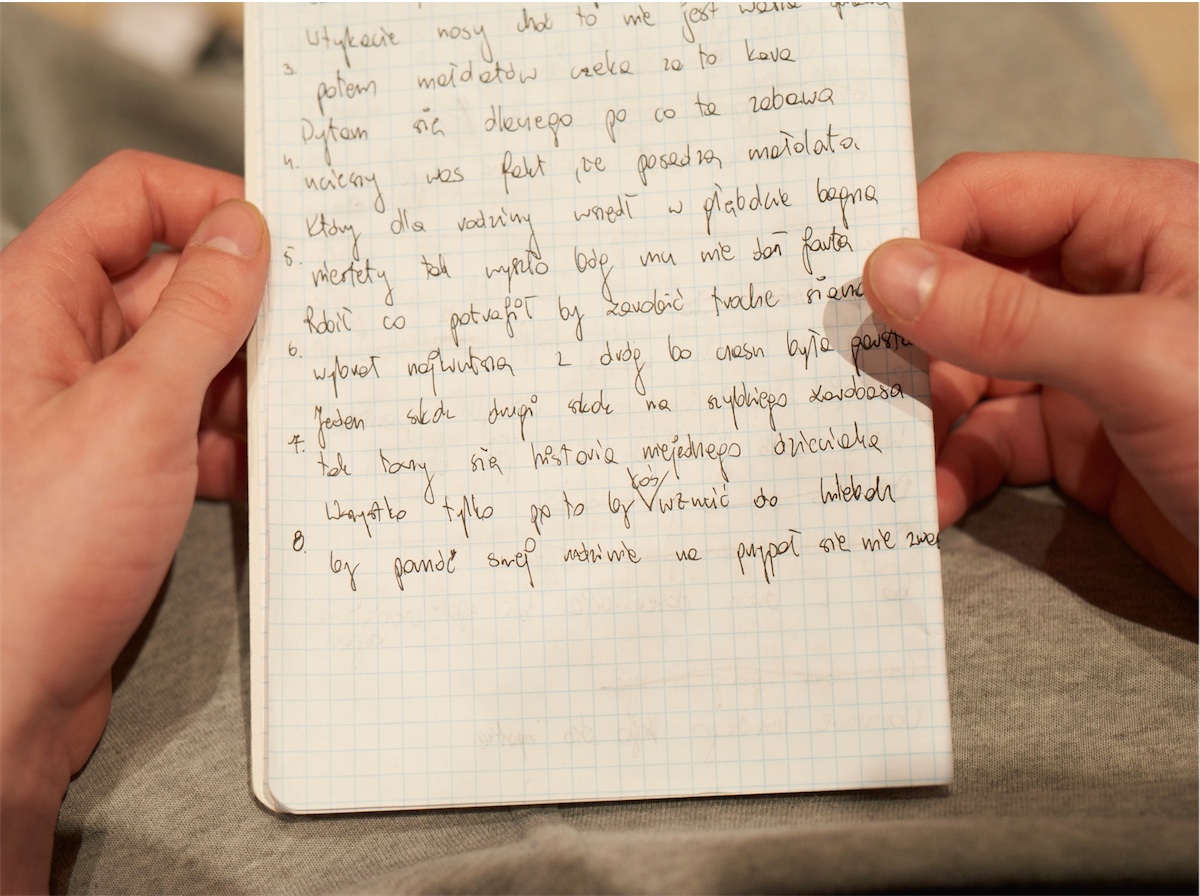 Utykacie nosy choć to nie jest wasza
3. potem małolatów czeka za to kara
Pytam się dlaczego po co ta zabawa
4. ucieszy was fakt, że posadzą małolata
Który dla rodziny wszedł w głąbokie bagna
5. niestety tak wyszło bóg mu nie dał farta
Robić co potrafił by zarobić troche siana
6. wybrał najkrutszą z dróg bo czasu była garstka
Jeden skok drugi skok na szybkiego zarobasa
7. tak toczy się historia niejednego dzieciaka
Wszystko tylko po to by coś wrzucić do
8. by pomóc swej rodzinie na przypał sie nie